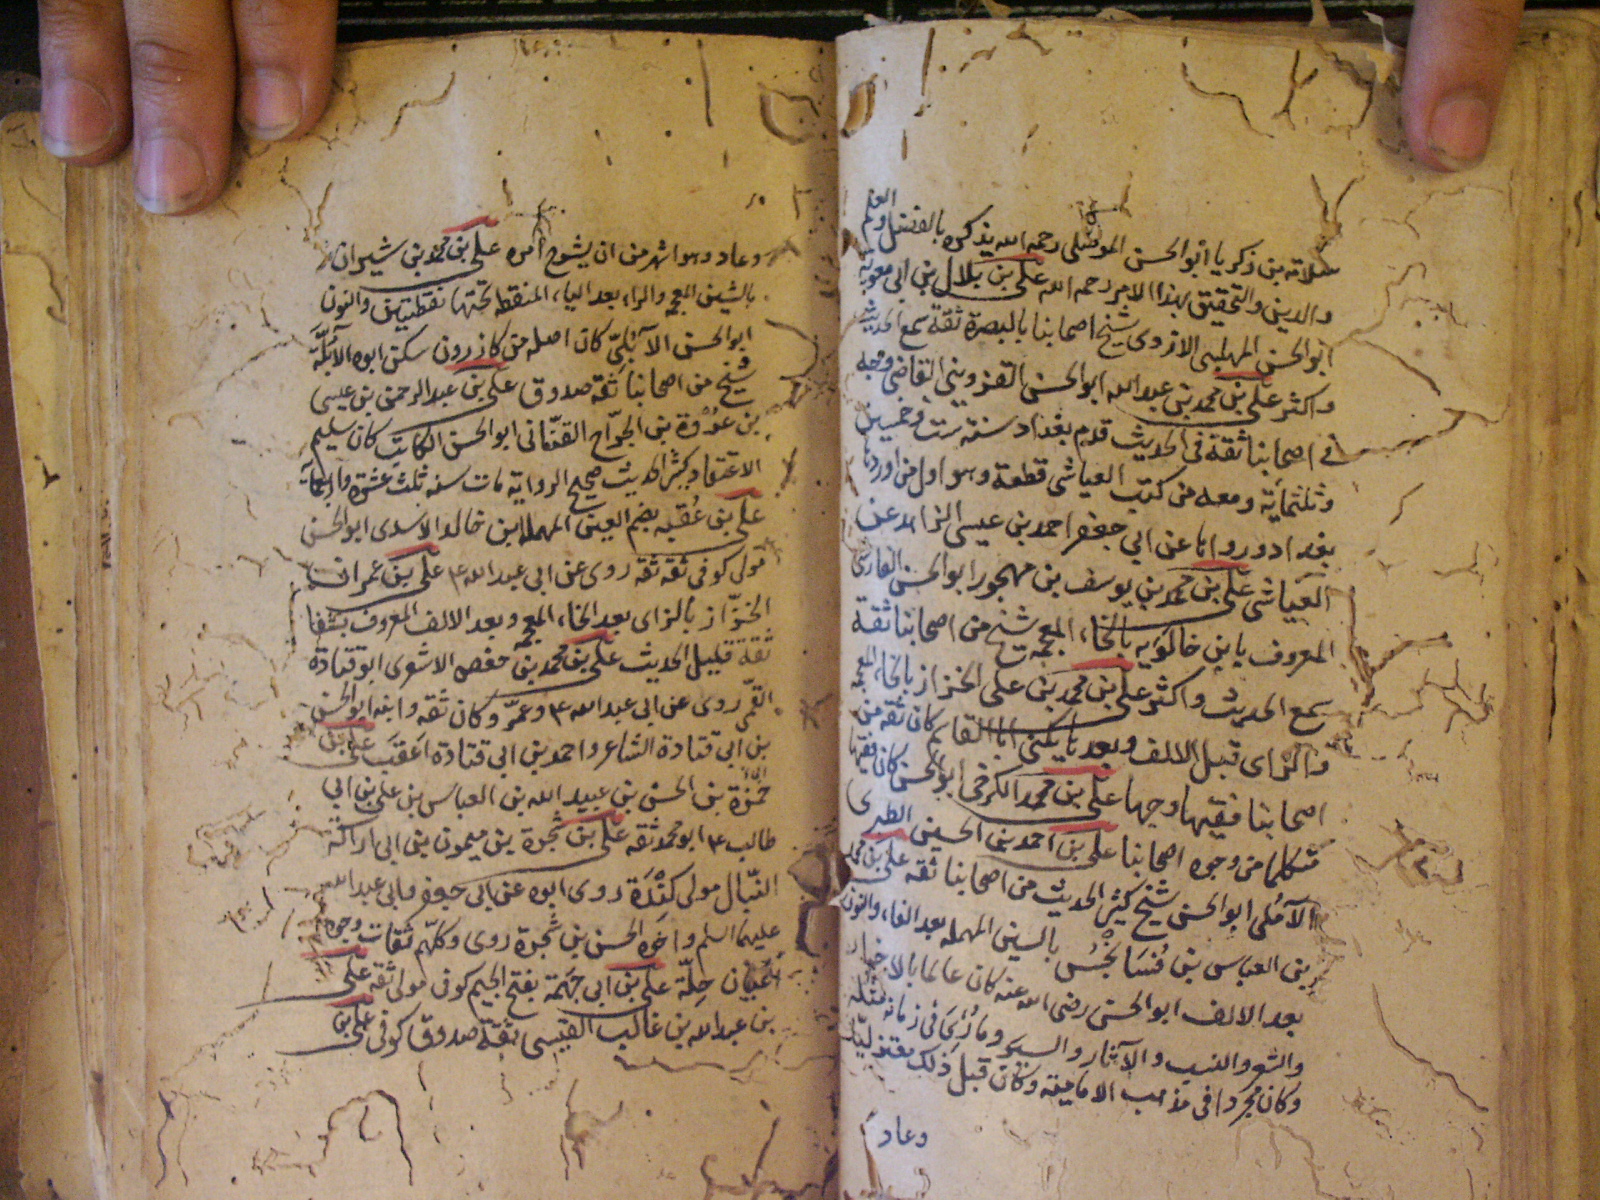 العلم
سلامة بن زكريا ابو الحسن الموصلى رحمه الله يذكره بالفضل و
والدين والتحقيق بهذا الامر رحمه الله على بن بلال بن ابى معوية
ابو الحسن المهلبى الازدى شيخ اصحابنا بالبصرة ثقة سمع الحديث
واكثر على بن محمد بن عبد الله ابو الحسن القزوينى القاضى وجه
فى اصحابنا ثقة فى الحديث قدم بغداد سنة ست وخمسين
وثلثمائة ومعه من كتب العياشى قطعة وهو اول من اوردها
بغداد ورواها عن ابى جعفر احمد بن عيسى الزاهد عن
العياشى على بن محمد بن يوسف بن مهجور ابو الحسن الفارسى
المعروف بابن خالويه بالخاء المعجمة شيخ من اصحابنا ثقة
سمع الحديث واكثر على بن محمد بن على الخزاز بالخاء المعجمة
والزاى قبل الالف وبعدها يكنى ابا القاسم كان ثقة من
اصحابنا فقيها وجها على بن محمد الكرخى ابو الحسن كان فقيها
متكلما من وجوه اصحابنا على بن احمد بن الحسين الطبرى
الآملى ابو الحسن شيخ كثير الحديث من اصحابنا ثقة على بن محمد
بن العباس بن فسانجس بالسين المهملة بعد الفاء والنون
بعد الالف ابو الحسن رضى الله عنه كان عالما بالاخبار
والشعر والنسب والآثار والسير وما رئى فى زمانه مثله
وكان مجردا فى مذهب الامامية وكان قبل ذلك معتزليا
وعاد
وعاد وهو اشهر من ان يشرح امره على بن محمد بن شيران
بالشين المعجمة والراء بعد الياء المنقطة تحتها نقطتين والنون
ابو الحسن الآبلى كان اصله من كازرون سكن ابوه الآبلة
شيخ من اصحابنا ثقة صدوق على بن عبد الرحمن بن عيسى
بن عروة بن الجراح القنانى ابو الحسن الكاتب كان سليم
الاعتقاد كثير الحديث صحيح الرواية مات سنه ثلث عشرة واربعمائة
على بن عقبه بضم العين المهملة ابن خالد الاسدى ابو الحسن
مولى كوفى ثقه ثقه روى عن ابى عبد الله ع على بن عمران
الخزاز بالزاى بعد الخاء المعجمه وبعد الالف المعروف بشفا
ثقة قليل الحديث على بن محمد بن حفص الاشعرى ابو قتادة
القمى روى عن ابى عبد الله ع وعمر وكان ثقه وابنه ابو الحسن
بن ابى قتادة الشاعر واحمد بن ابى قتادة اعقب على بن
حمزة بن الحسن بن عبيد الله بن العباس بن على بن ابى
طالب ع ابو محمد ثقه على بن شجرة بن ميمون بن ابى اراكة
النبال مولى كندة روى ابوه عن ابى جعفر وابى عبد الله
عليهما السلم واخوه الحسن بن شجرة روى وكلهم ثقات وجوه
اعيان جلة على بن ابى جهمة بفتح الجيم كوفى مولى ثقة على
بن عبد الله بن غالب القيسى ثقة صدوق كوفى على بن